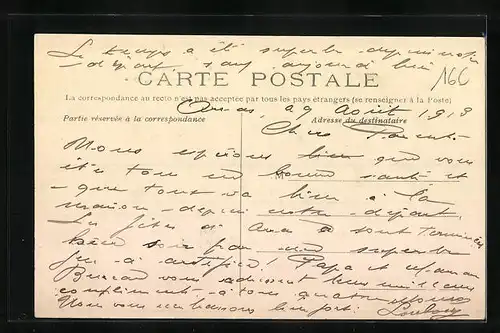 Le temps a été superbe depuis notre
départ, sauf aujourd'hui
CARTE POSTALE
16C
La correspondance au recto n'est pas acceptée par tous les pays étrangers (se renseigner à la Poste)
Partie réservée à la correspondance
Adresse du destinataire
29 Août 1913
Chers Parents
Nous espérons bien que vous
êtes tous en bonne santé et
M
que tout va bien à la
maison depuis notre départ.
Les fêtes sont terminées
hier soir par un superbe
feu d'artifice! Papa et maman
vous adressent leurs meilleurs
compliments à tous quatre
Nous vous embrassons bien fort.